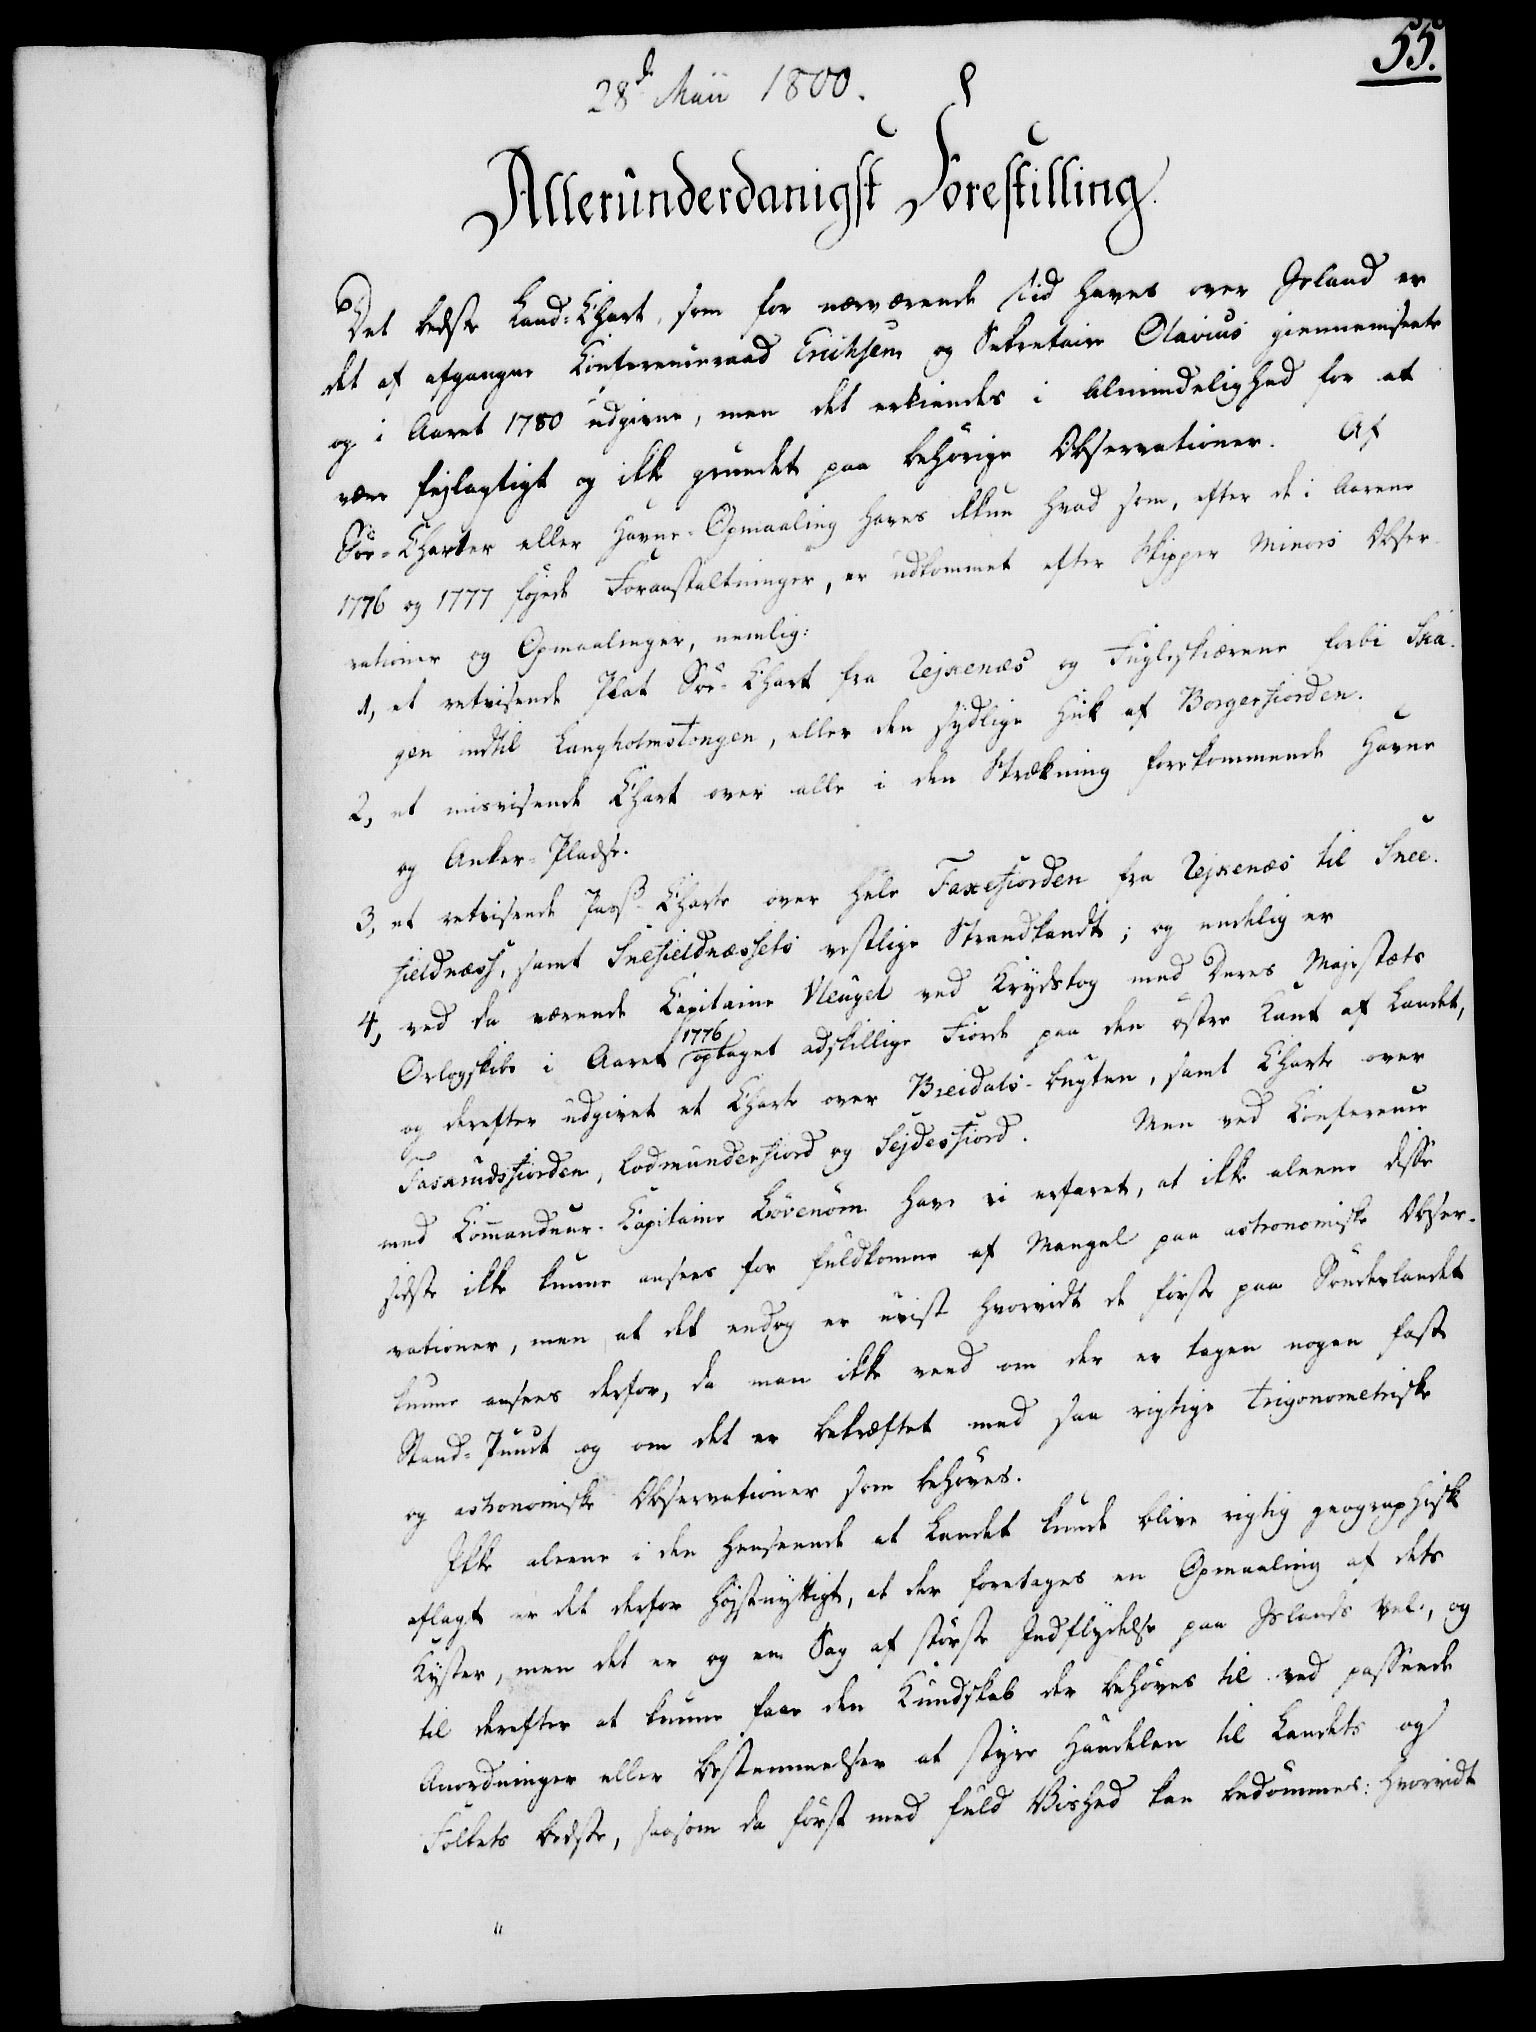 55.
28d Maii 1800.
Allerunderdanigst Forestilling.
Det bedste Land-Chart, som for nærværende Tid haves over Island er
det af afgangne Conferenceraad Erichsen og Sekretaire Olavius giennemseete
og i Aaret 1780 udgivne, men det erkiendes i Almindelighed for at
være fejlagtigt og ikke grundet paa behörige Observationer. Af
Söe-Charter eller Havne-Opmaaling haves ikkun hvad som, efter de i Aarene
1776 og 1777 föjede Foranstaltninger, er udkommet efter Skipper Minors Obser-
vationer og Opmaalinger, nemlig:
1, et retvisende Plat Söe-Chart fra Rejkenæs og Fugleskiærene forbi Ska-
gen indtil Langholmstongen, eller den sydlige Huk af Borgerfiorden.
2, et misvisende Chart over alle i den Strækning forekommende Havne
og Anker-Pladse.
3, et retvisende Pass-Charte over hele Faxefiorden fra Rejkenæs til Snee-
fieldnæss, samt Sneefieldnæssets vestlige Strandkandt; og endelig er
4, ved da værende Capitaine Vleugel ved Krydstog med Deres Majestæts
Orlogskibe i Aaret 1776 optaget adskillige Fiorde paa den östre Kant af Landet,
og derefter udgivet et Charte over Breidals-bugten, samt Charte over
Faskrudsfiorden, Lodmunderfiord og Sejdesfiord. Men ved Conference
med Commandeur-Capitaine Lövenörn have vi erfaret, at ikke aleene disse
sidste ikke kunne ansees for fuldkomne af Mangel paa astronomiske Obser-
vationer, men at det endog er uvist hvorvidt de förste paa Sönderlandet
kunne ansees derfor, da man ikke veed om der er tagen nogen fast
Stand-Punct og om det er bekræftet med saa rigtige trigonometriske
og astronomiske Observationer som behöves.
Ikke aleene i den Henseende at Landet kunde blive rigtig geographisk
aflagt er det derfor höjstnyttigt, at der foretages en Opmaaling af dets
Kyster, men det er og en Sag af störste Indflydelse paa Islands Vel, og
til derefter at kunne faae den Kundskab der behöves til ved passende
Anordninger eller Bestemmelser at styre Handelen til Landets og
Folkets bedste, saasom da först med fuld Vished kan bedömmes: hvorvidt